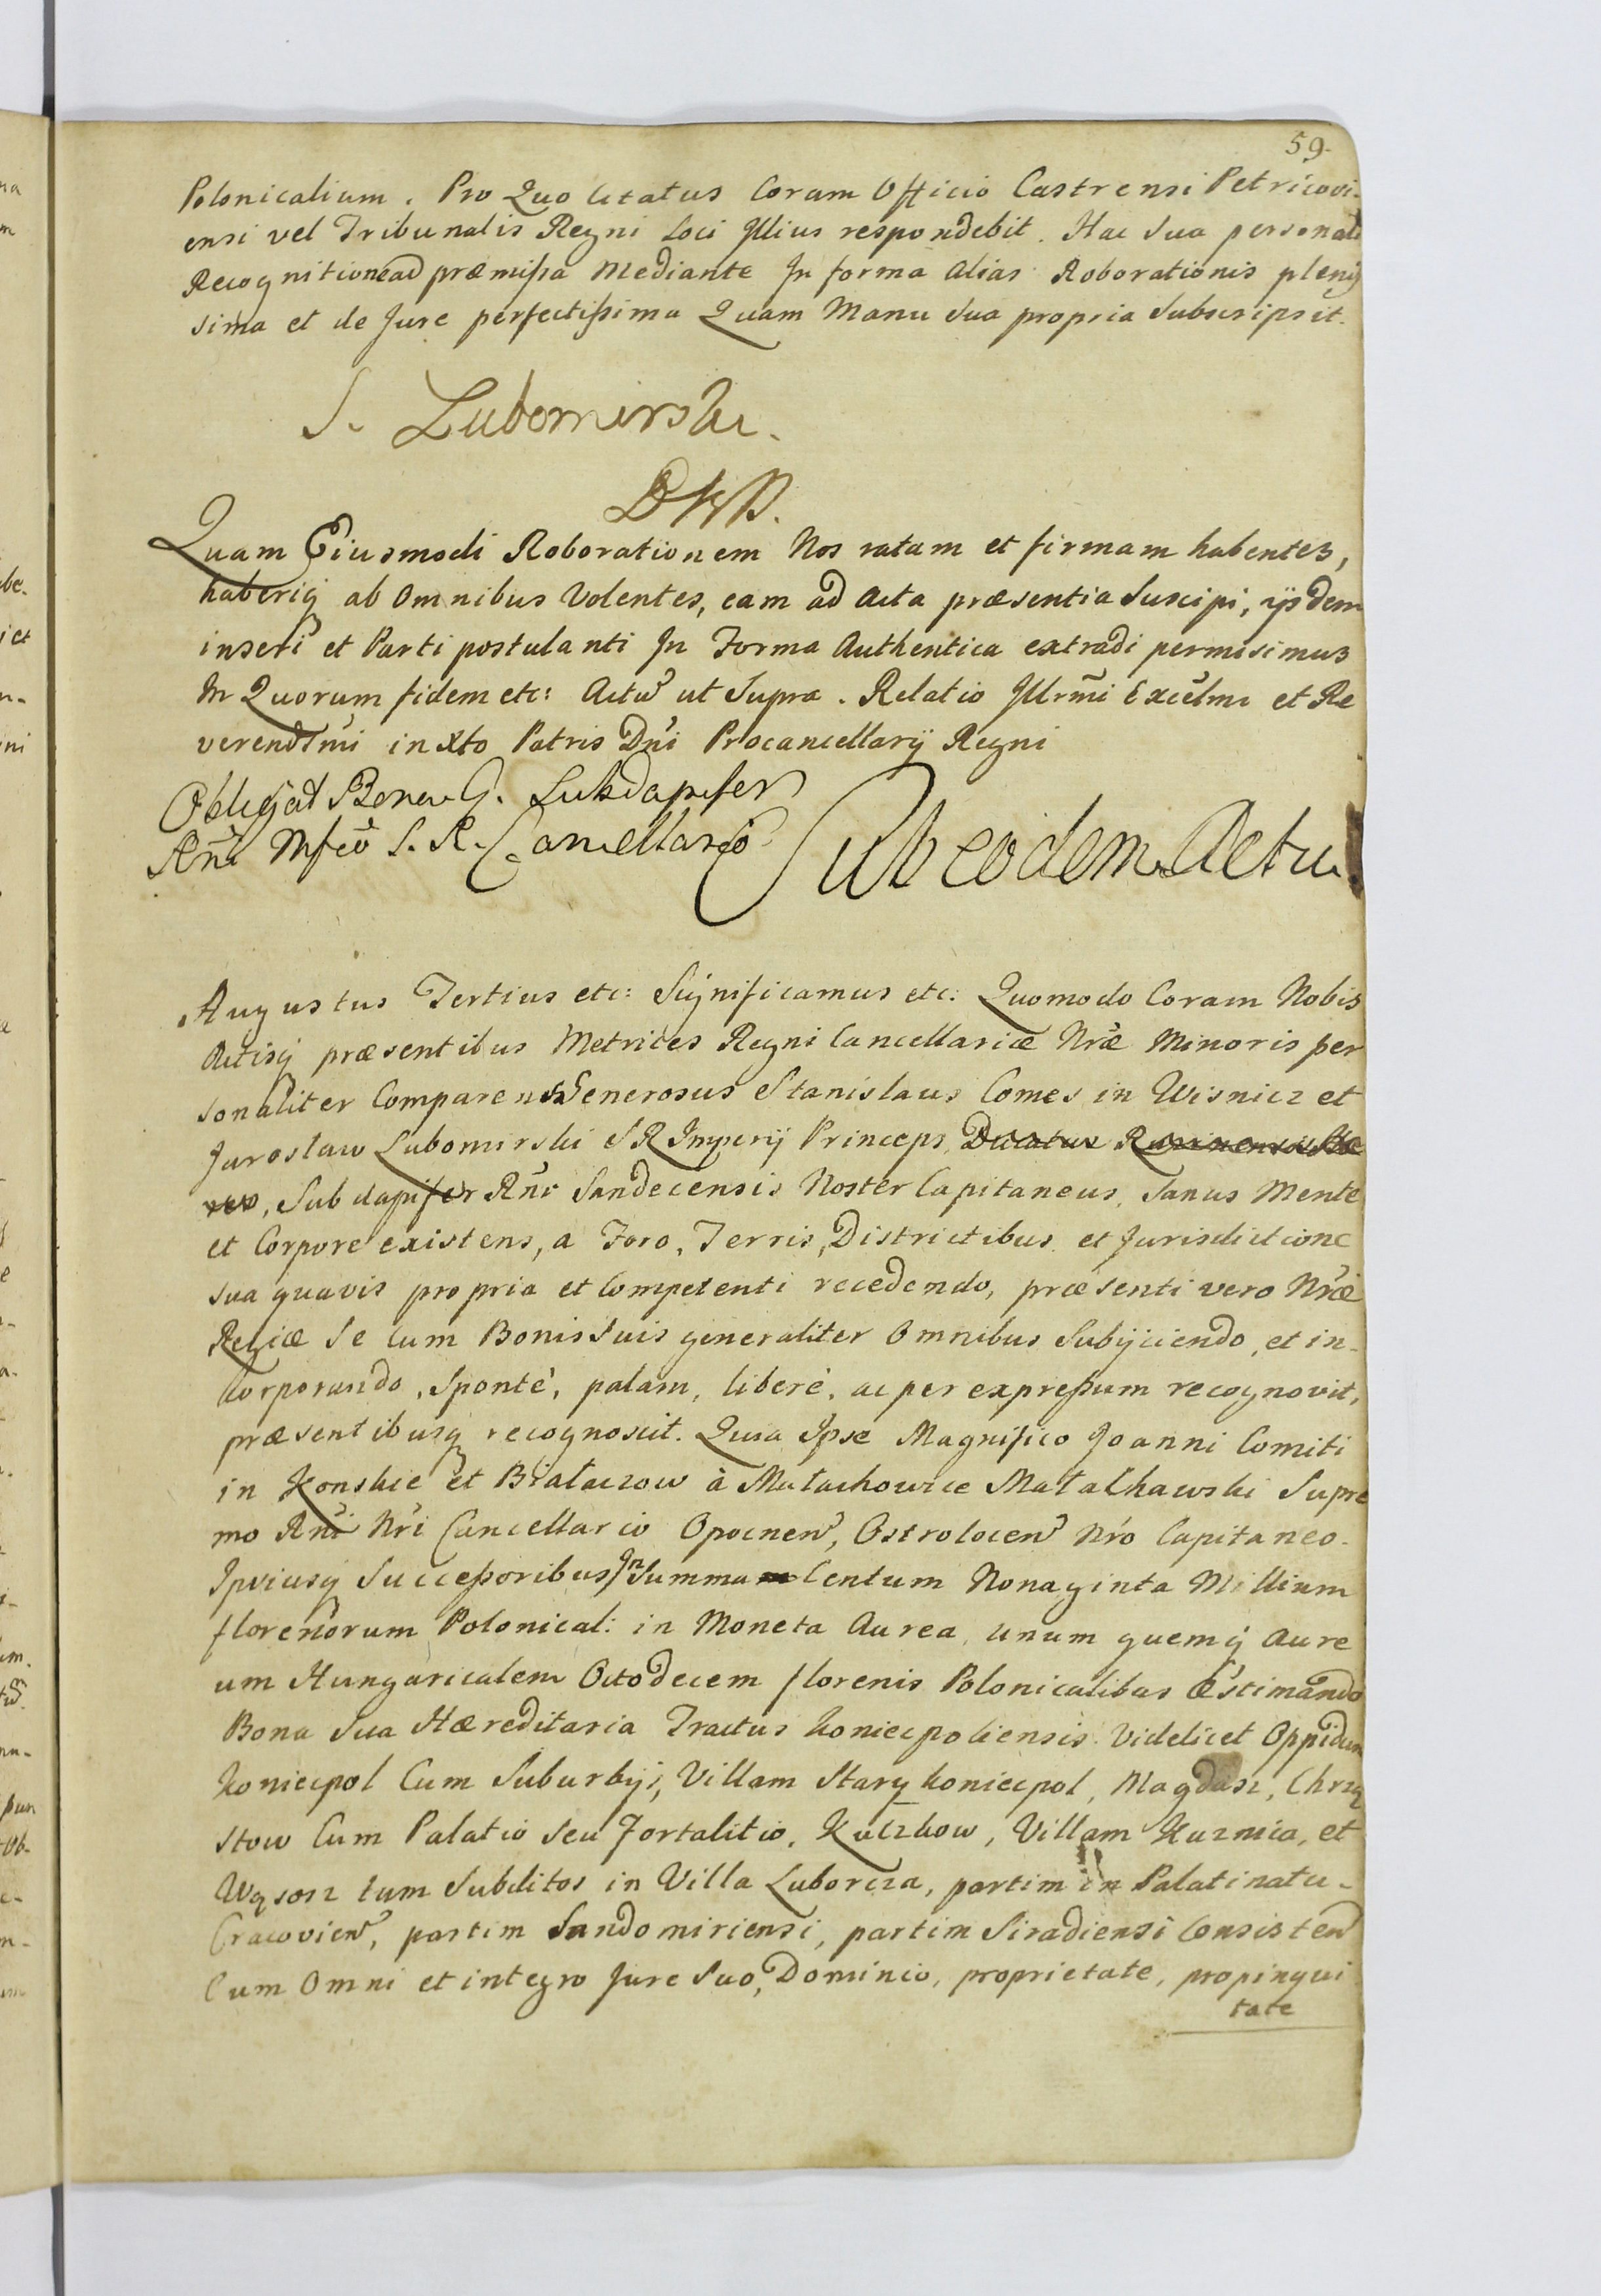 59
Polonicalium. Pro Quo citatus Coram Officio Castrensi Petricovi-
ensi vel Tribunalis Regni Loci Illius respondebit. Hac Sua personali
Recognitione ad præmissa Mediante In forma alias Roborationis plenis
sima et de Jure perfectissima Quam Manu Sua propria Subscripsit.
S. Lubomirski
Quam Eiusmodi Roborationem Nos ratam et firmam habentes,
haberiq ab Omnibus Volentes, eam ad Acta præsentia Suscipi, ijsdem
inseri et Parti postulanti In Forma Authentica extradi permisimus
In Quorum fidem etc: Actũ ut Supra. Relatio Illrm̃i Excelm̃i et Re
verendsm̃i in Xto Patris Dn̄i Procancellarÿ Regni
Obligat Bona G. Subdapifer
Rñi Mfco S. R. Cancellario
Sub eodem Actu
Augustus Tertius etc: Significamus etc: Quomodo Coram Nobis
Actisq præsentibus Metrices Regni Cancellariæ Nr̃æ Minoris per
sonaliter Comparens Generosus Stanislaus Comes in Wisnicz et
Jaroslaw Lubomirski S R Imperij Princeps, Ducatus
, Subdapifer Rñi Sandecensis Noster Capitaneus, Sanus Mente
et Corpore existens, a Foro, Terris, Districtibus, et Jurisdictione
sua quavis propria et Competenti recedendo, præsenti vero Nr̃æ
Regiæ Se cum Bonis Suis generaliter Omnibus Subijciendo, et in-
corporando, Sponté, palam, liberé, ac per expressum recognovit,
præsentibusq recognoscit. Quia Ipse Magnifico Joanni Comiti
in Konskie et Białaczow à Małachowice Małachowski Supre
mo Rñi Nr̃i Cancellario Opocneñ, Ostroloceñ Nr̃o Capitaneo.
Ipsiusq Successoribus In Summa Centum Nonaginta Millium
florenorum Polonical: in Moneta Aurea, unum quemq Aure
um Hungaricalem Octodecem florenis Polonicalibus Æstimando
Bona Sua Hæreditaria Tractus Koniecpoliensis Videlicet Oppidum
Koniecpol Cum Suburbijs, Villam Stary Koniecpol, Magdasz, Chrzą
stow Cum Palatio seu Fortalitio, Kuczkow, Villam Kuznica, et
Wąsosz tum Subditos in Villa Luborcza, partim in Palatinatu-
Cracovieñ, partim Sandomiriensi, partim Siradiensi Consisteñ
Cum Omni et integro Jure Suo, Dominio, proprietate, propinqui
tate